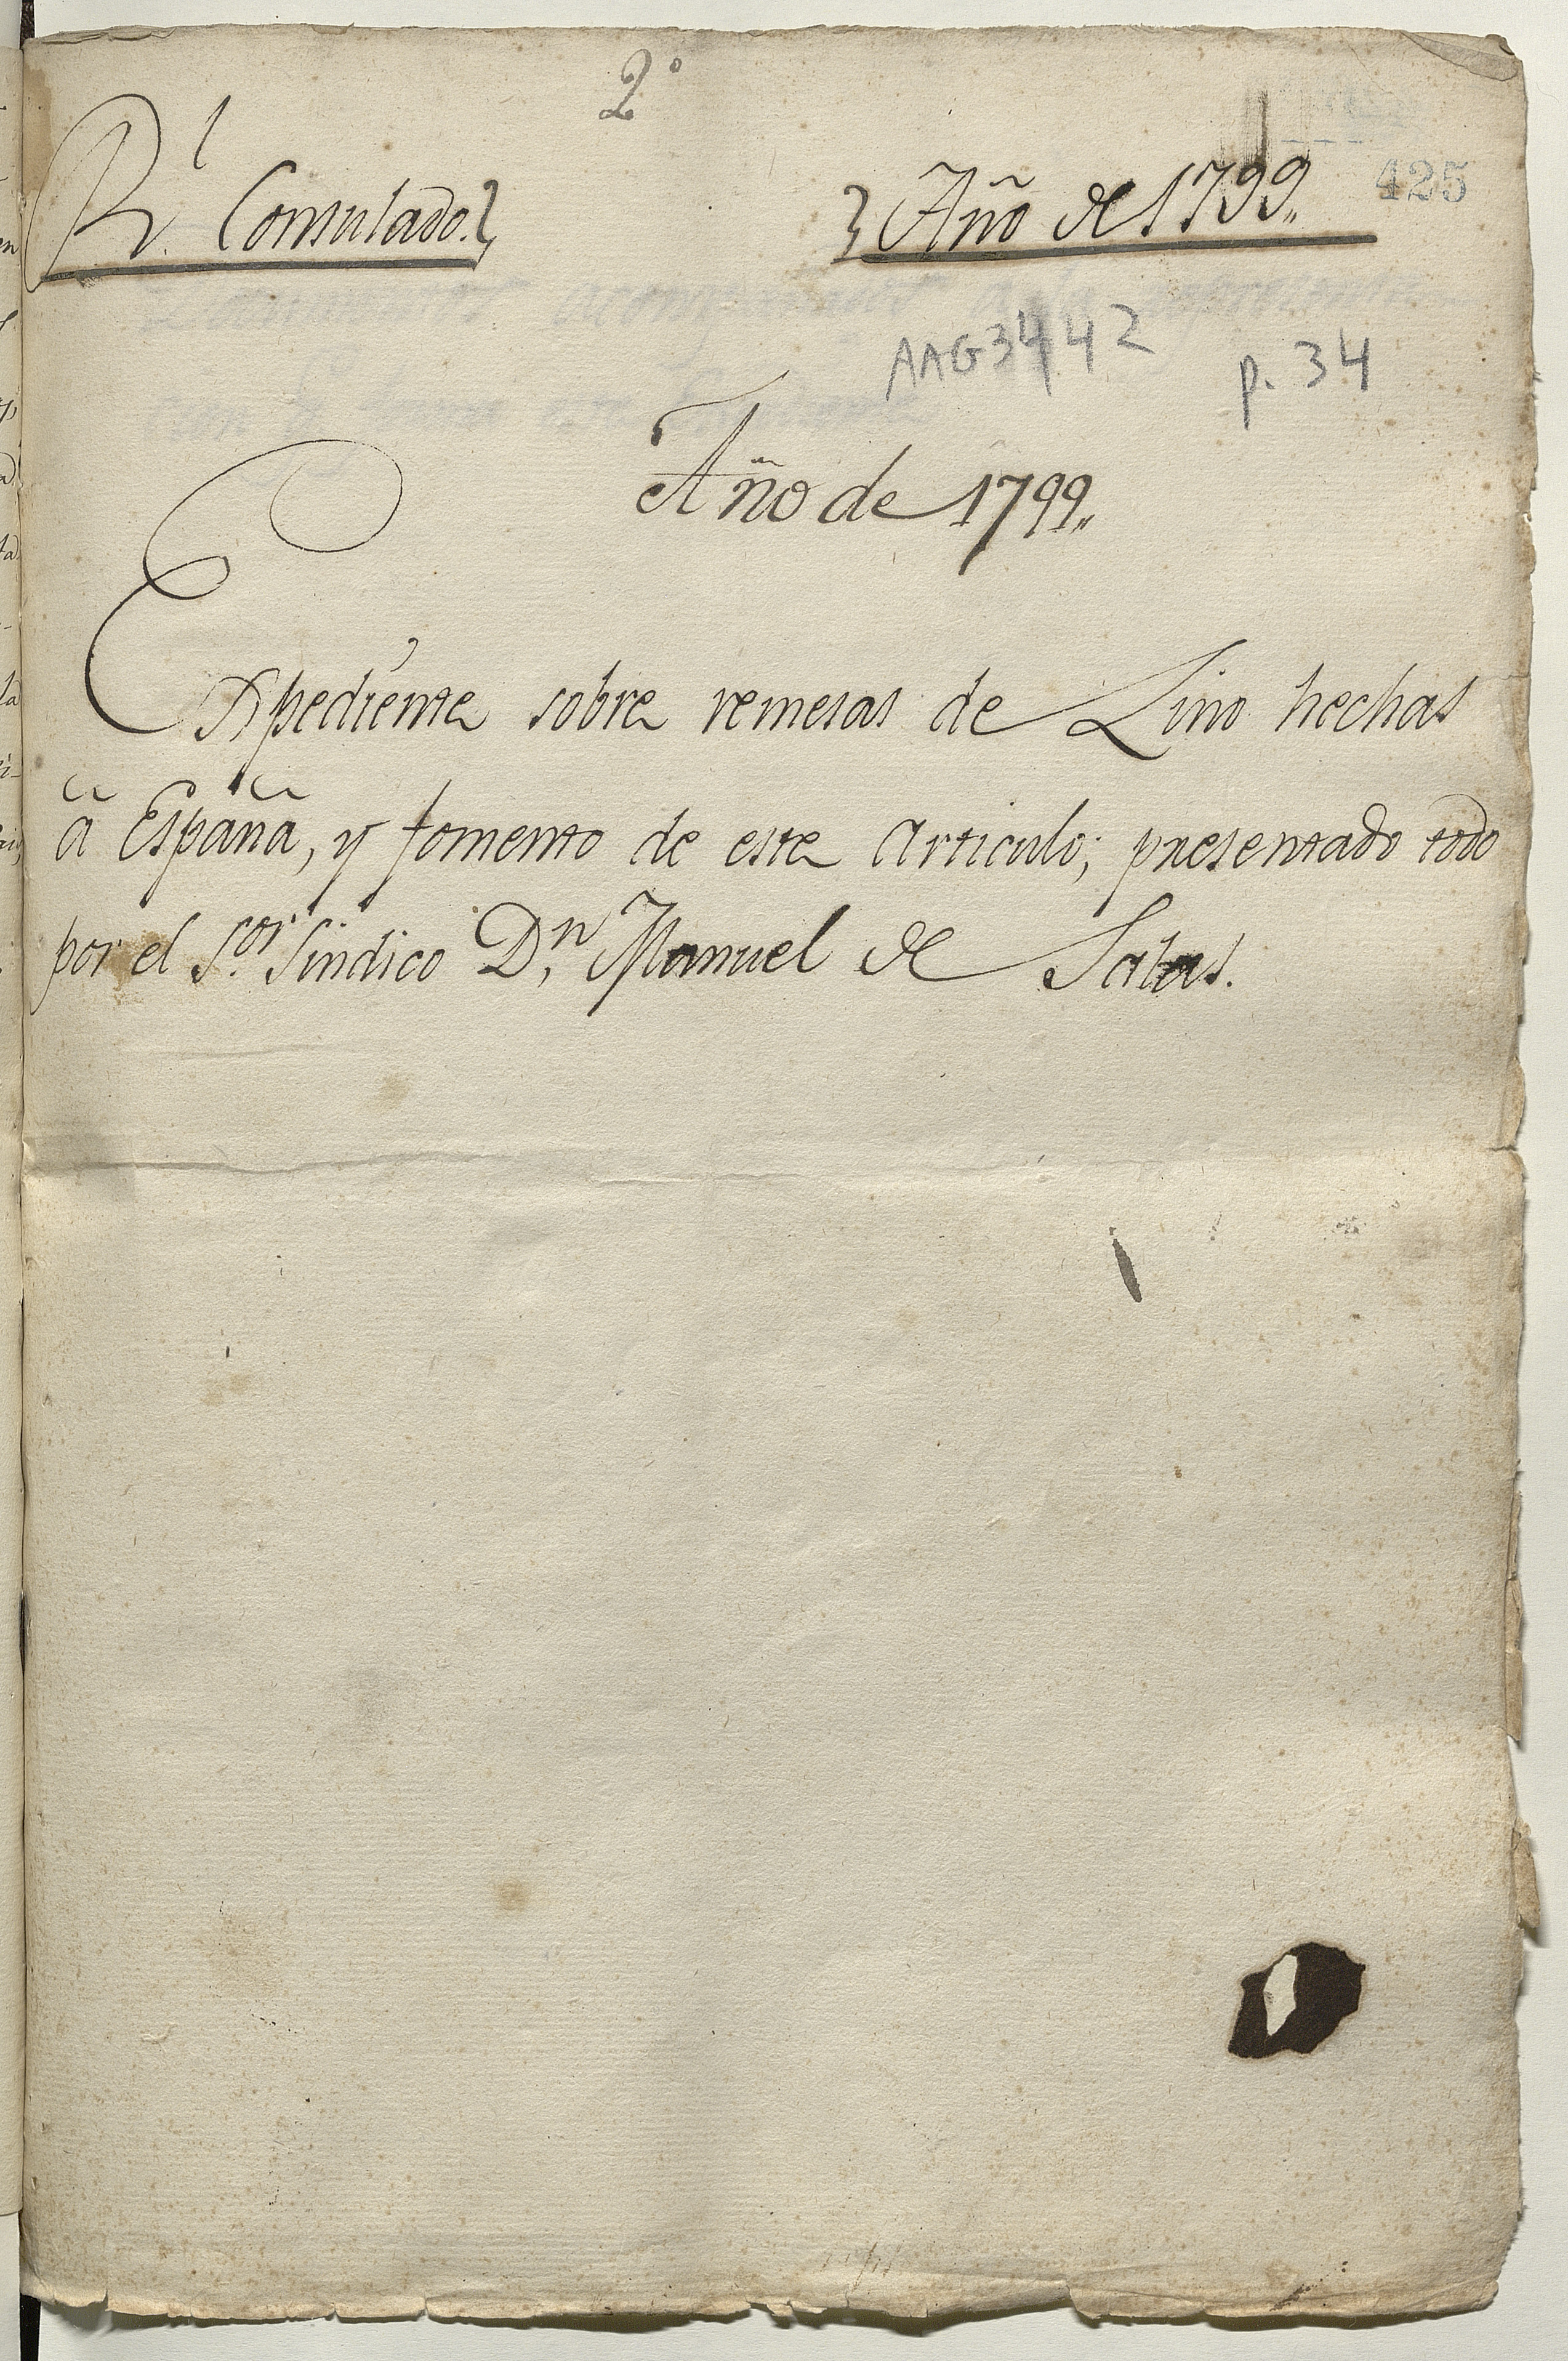 2º
Rl. Consulado.
Año de 1799,,
425
AAG3442 p. 34
Año de 1799,,
Expediente sobre remesas de Lino hechas
â España, y fomento de este Articulo; presentado todo
por el S.or Sindico D.n Manuel de Salas.